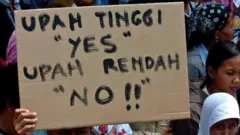 UPAH TINGGI
"YES"
UPAH RENDAH
"NO"!!